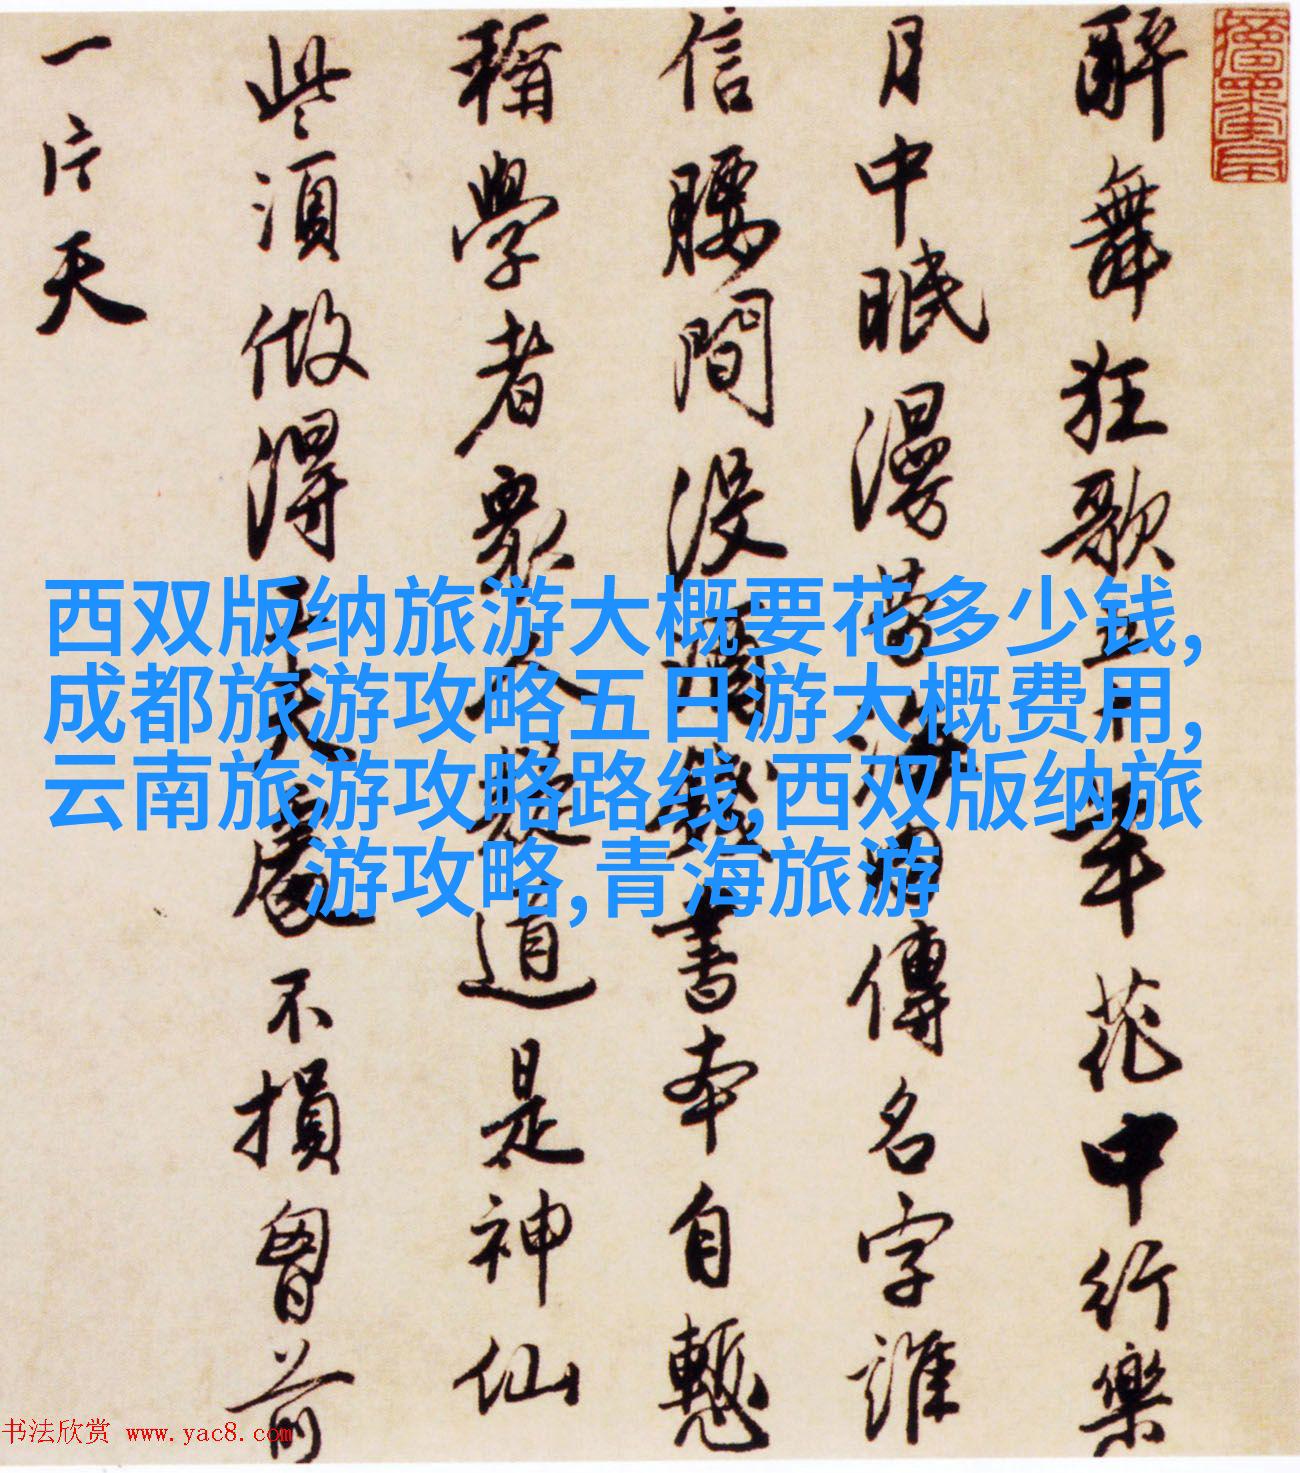 醉舞狂歌五十年花中行樂
月中眠漫勞海內傳名字誰
信腰間沒酒錢書本自慙
稱學者眾人疑道是神仙
些須做得工夫處不損胷前
一片天
西双版纳旅游大概要花多少钱,
成都旅游攻略五日游大概费用,
云南旅游攻略路线,西双版纳旅
游攻略,青海旅游
书法欣赏 www.yac8.com